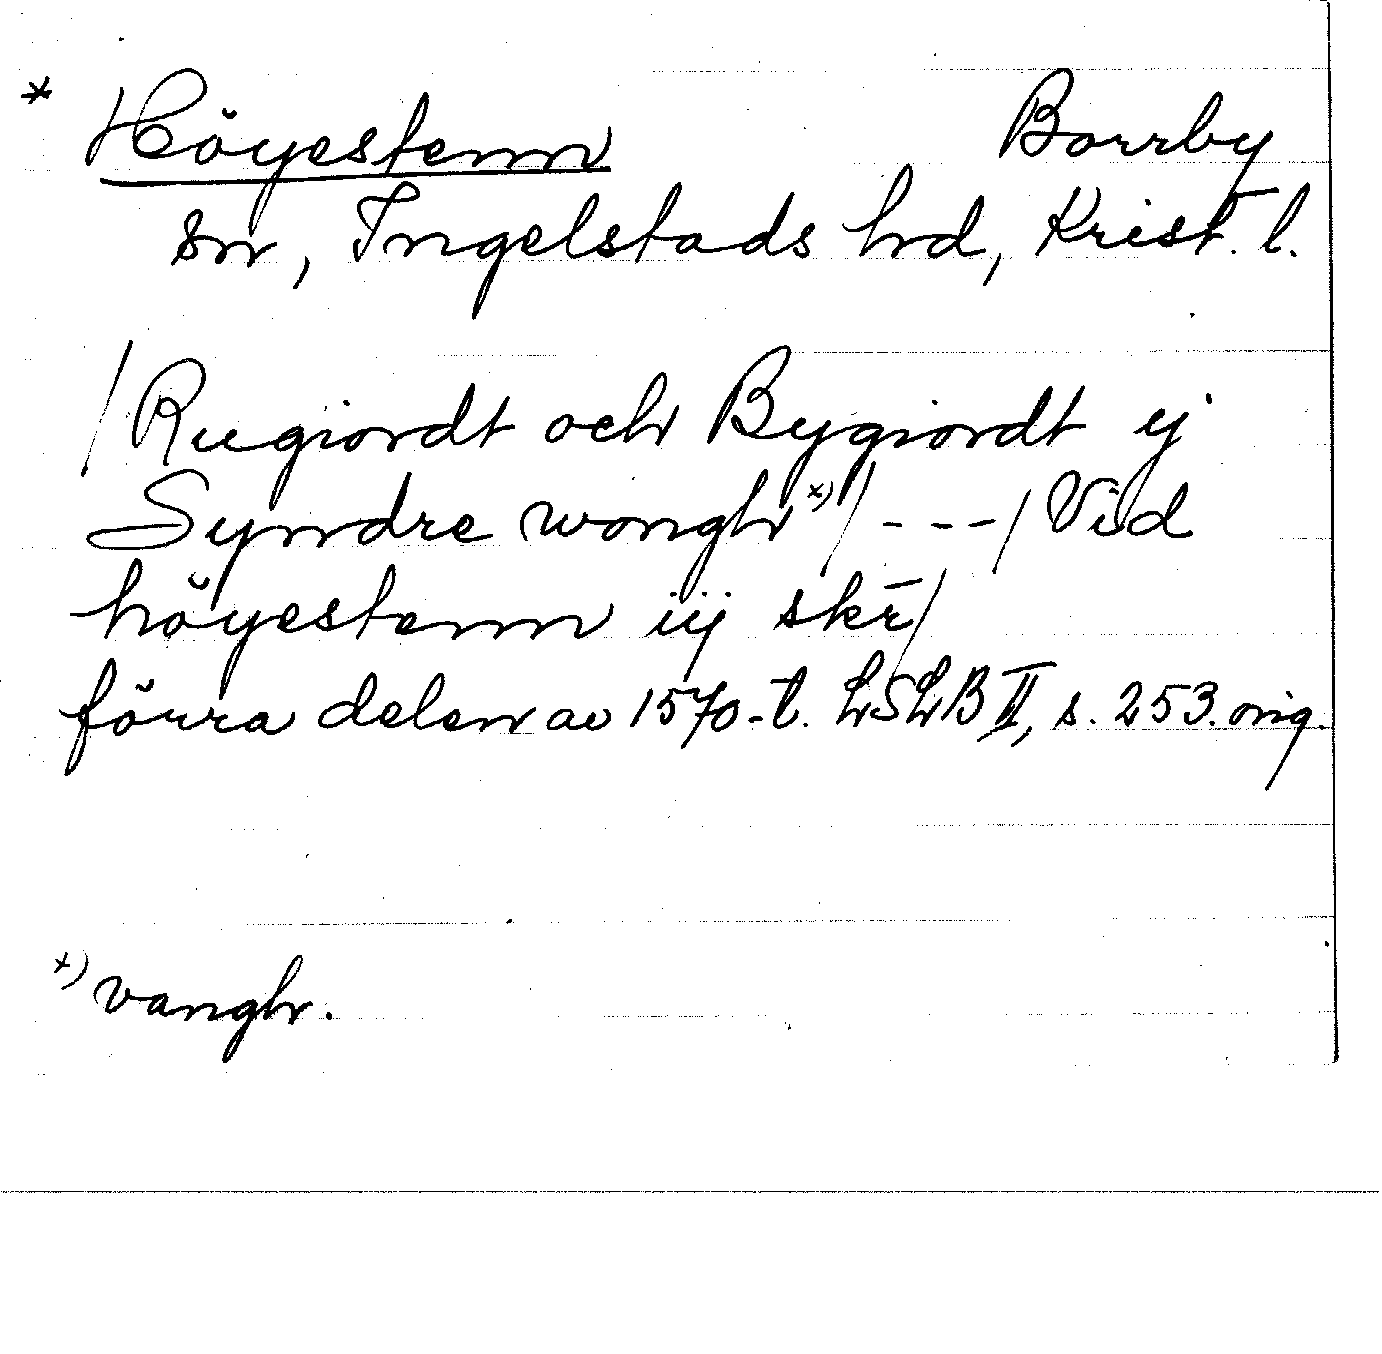 * Höyestenn Borrby
sn, Ingelstads hd, Krist. l.
/Rugiordt och Bygiordt ij
Syndre wongh x)/ - - - / Vid
höyestenn iij skr̄/
förra delen av 1570-t. LSLB II, s. 253. orig.
x) vangh.